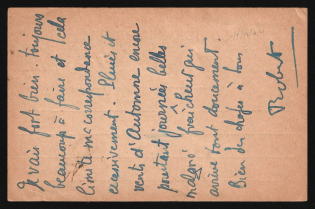 Je vais fort bien. toujours
beaucoup à faire et cela
limite ma correspondance
excessivement. Pluies et
vents d'Automne encore
pourtant journées belles
malgré fraîcheur qui
arrive tout doucement
Bien des choses à tous
Robert